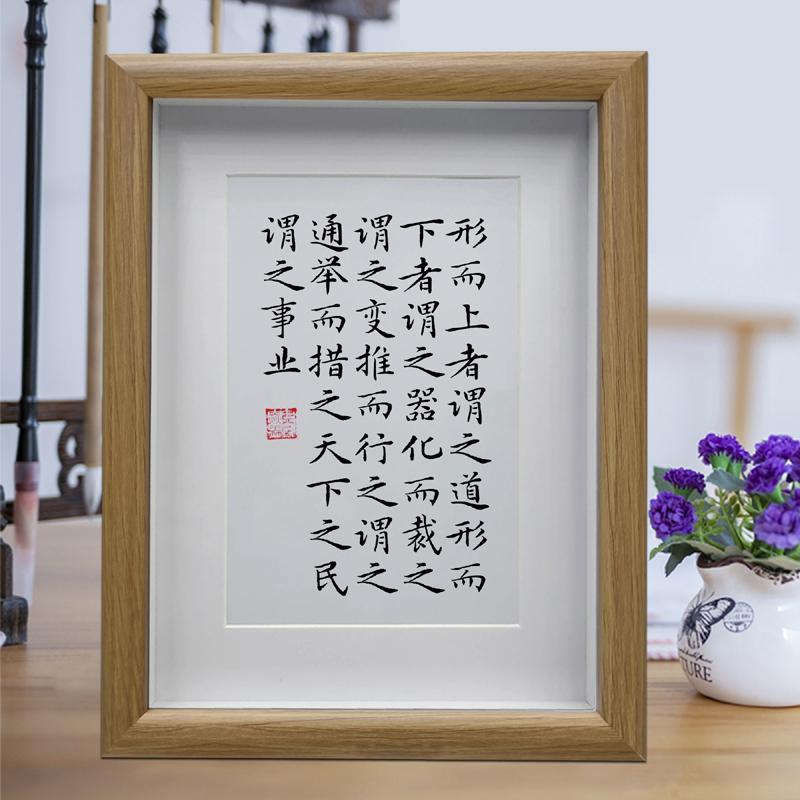 形而上者谓之道形而
下者谓之器化而裁之
谓之变推而行之谓之
通举而措之天下之民
谓之事业
TURE